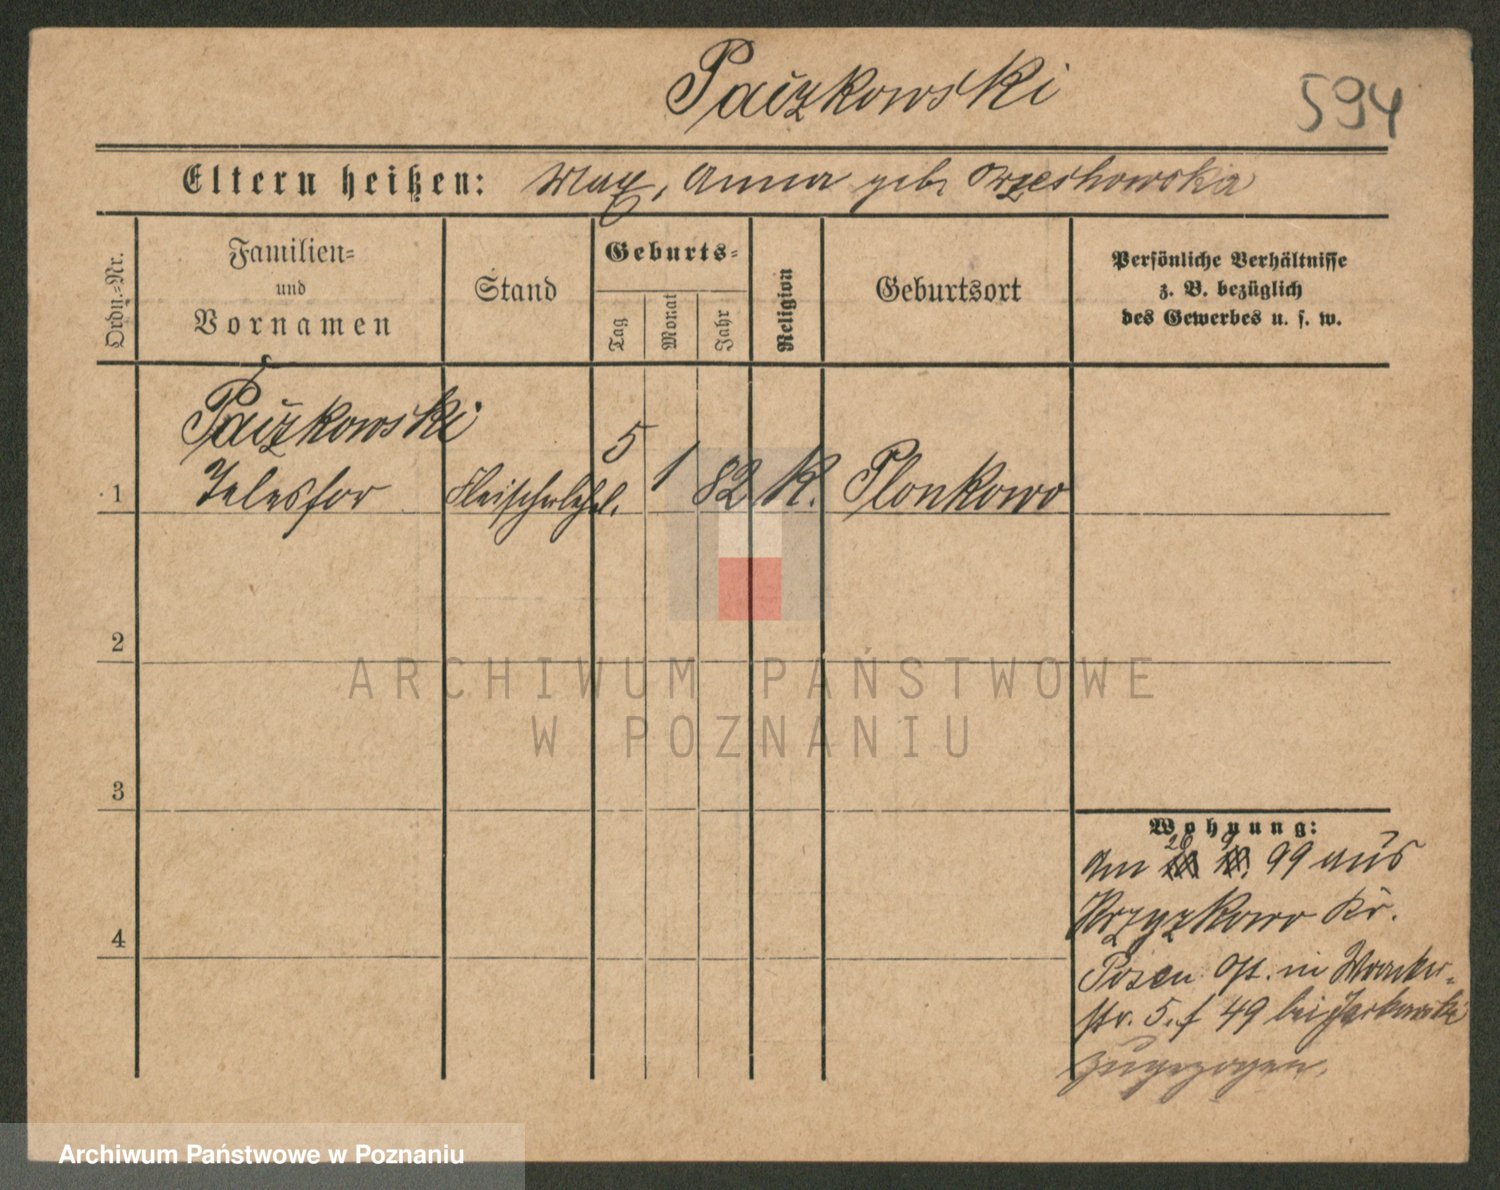 Paizkowski
594
Eltern heißen: Max, Anna geb. Orzeshowska
Ordn.-Nr.
Familien-
und
Vornamen
Stand
Geburts-
Tag
Monat
Jahr
Religion
Geburtsort
Persönliche Verhältnisse
z. B. bezüglich
des Gewerbes u. s. w.
Paizkowski
1 Telesfor Fleischerlehrl. 5 1 82 K. Plonkowo
2
3
4
Wohnung:
20 9
Am 99 aus
Krzyzkowo Kr.
Posen Ost. in Wronker-
str. 5. f 49 bei
zugezogen.
ARCHIWUM PAŃSTWOWE
W POZNANIU
Archiwum Państwowe w Poznaniu